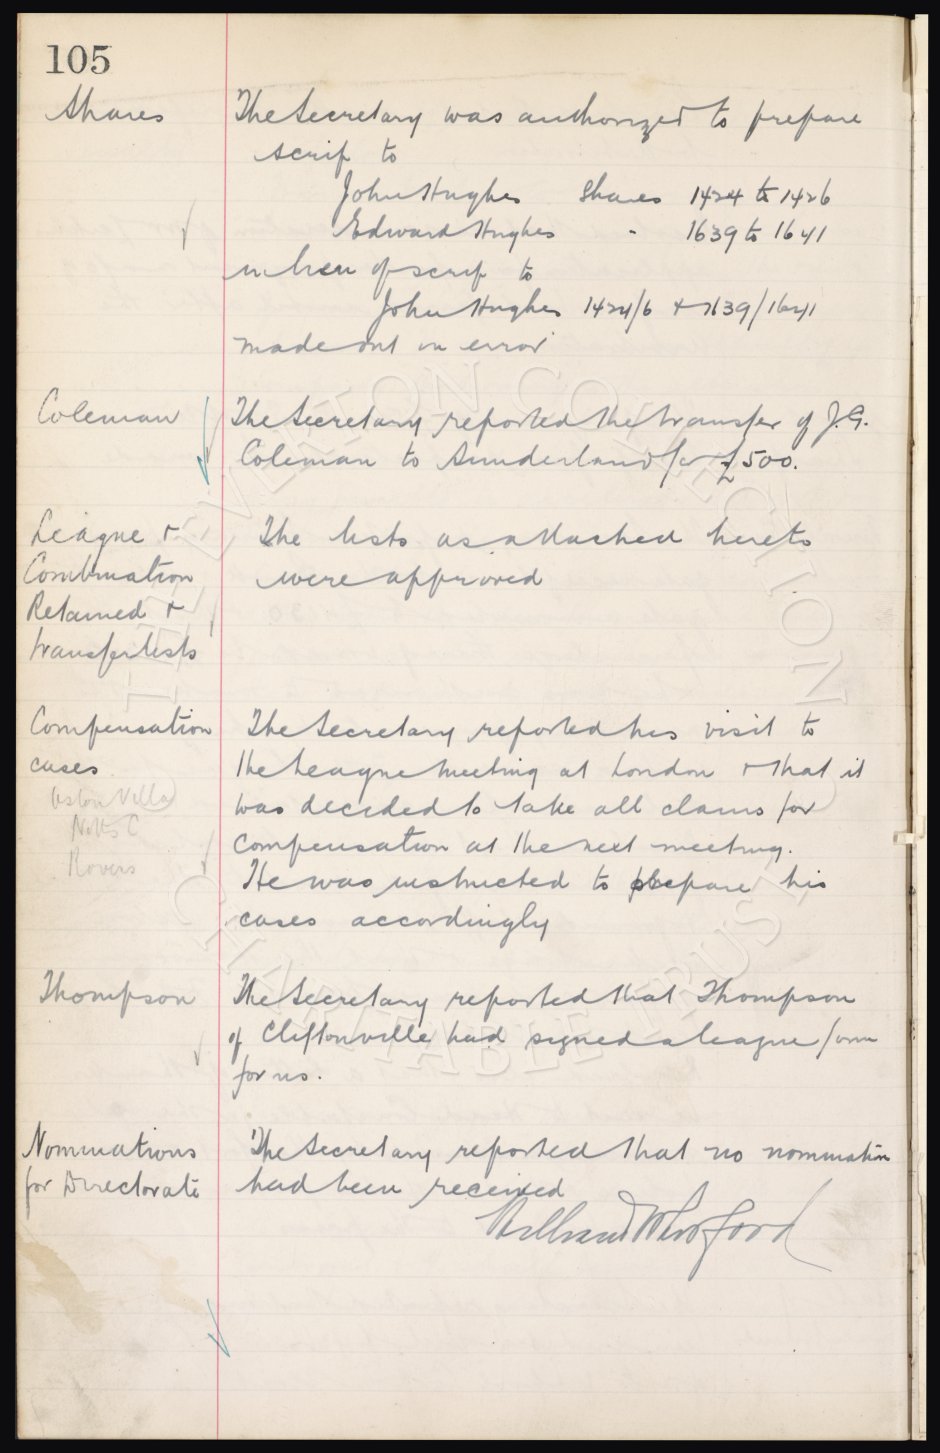 105
Shares
The Secretary was authorized to prepare
scrip to
John Hughes Shares 1424 to 1426
Edward Hughes " 1639 to 1641
in lieu of scrip to
John Hughes 1424/6 + 1639/1641
made out in error
Coleman
The Secretary reported the transfer of J.G.
Coleman to Sunderland for £500.
League +
Combination
Retained +
transfer lists
The lists as attached hereto
were approved
Compensation
cases
Aston Villa
Notts C
Rovers
The Secretary reported his visit to
the League Meeting at London + that it
was decided to take all claims for
compensation at the next meeting.
He was instructed to prepare his
cases accordingly
Thompson
The Secretary reported that Thompson
of Cliftonville had signed a league form
for us.
Nominations
for Directorate
The Secretary reported that no nomination
had been received
THE EVERTON COLLECTION
CHARITABLE TRUST